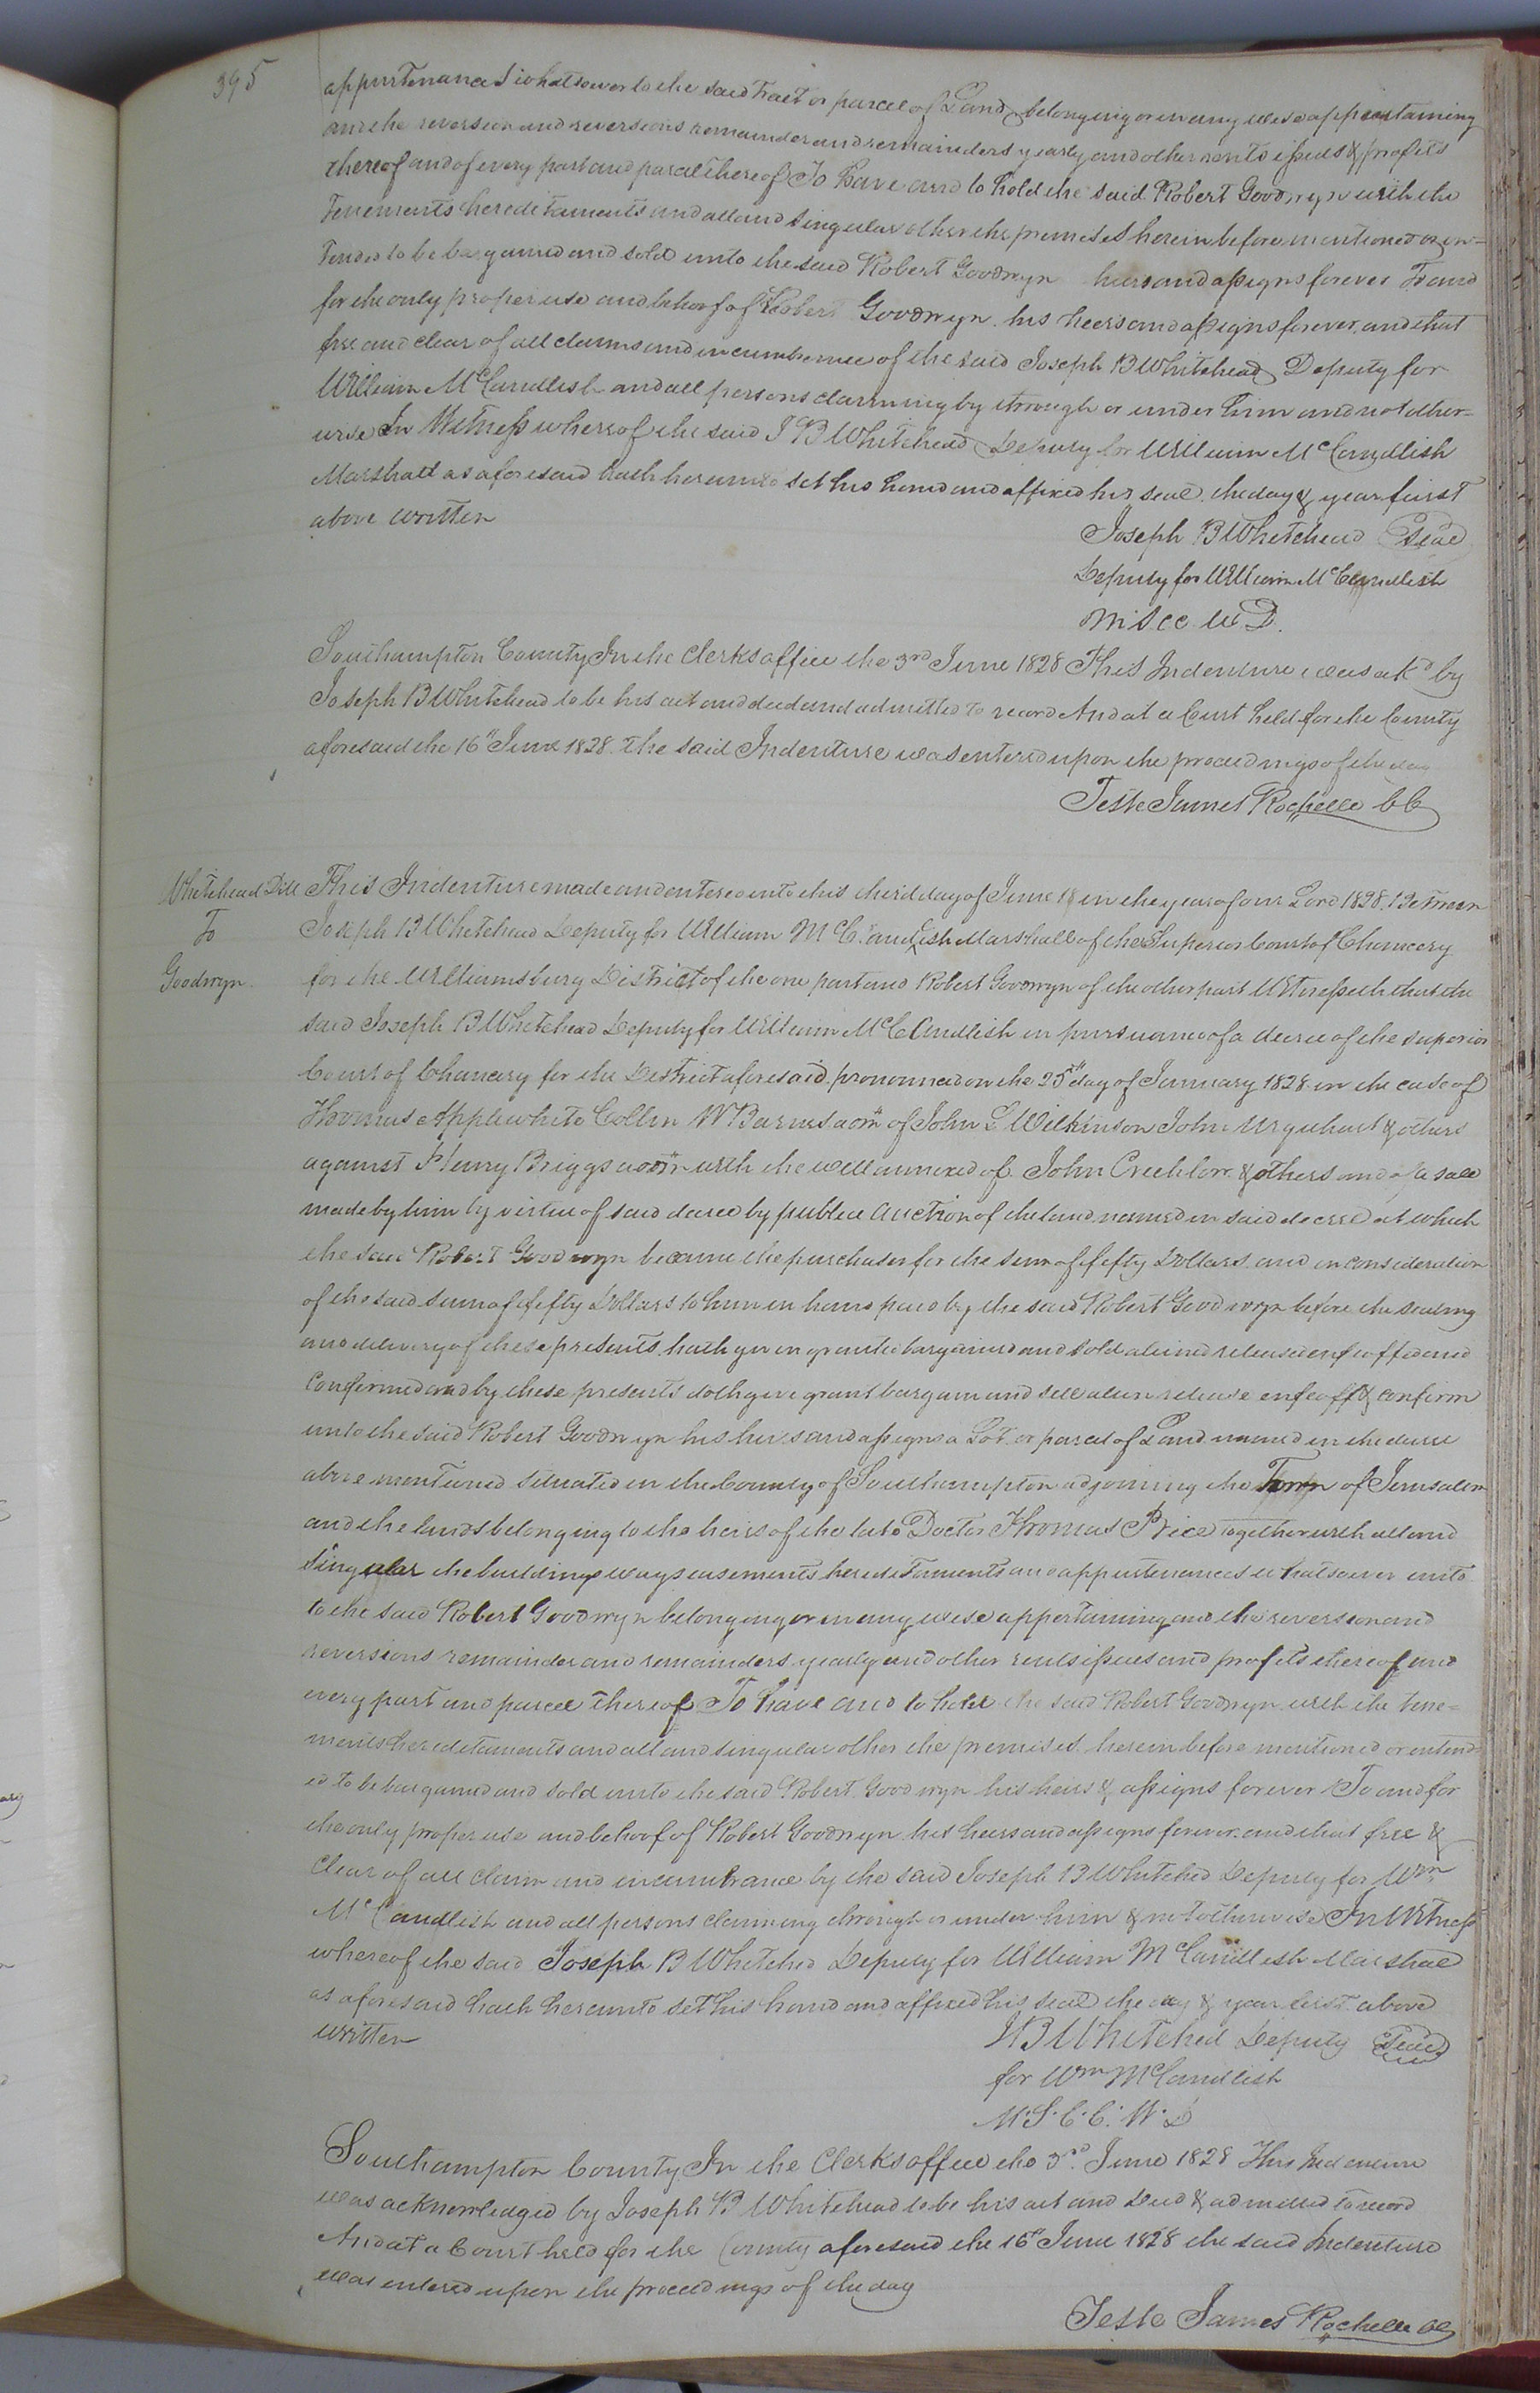 395
appurtenances whatsoever to the said Tract or parcel of Land belonging or in any wise appertaining
and the reversion and reversions remainder and remainders yearly and other rents issues & profits
thereof and of every part and parcel thereof To Have and to hold the said Robert Goodwyn with the
Tenements hereditaments and all and singular other the premises herein before mentioned or in=
tended to be bargained and sold unto the said Robert Goodwyn heirs and assigns forever To and
for the only proper use and behoof of Robert Goodwyn his heirs and assigns forever, and that
free and clear of all claims and incumbrance of the said Joseph B Whitehead Deputy for
William McCandlish and all persons claiming by through or under him and not other=
wise In Witness whereof the said J B Whitehead Deputy for William McCandlish
Marshall as aforesaid hath hereunto set his hand and affixed his seal the day & year first
above written
Joseph B Whitehead Seal
Deputy for William McCandlish
M S C C W D.
Southampton County In the Clerks office the 3rd June 1828 This Indenture was ackd by
Joseph B Whitehead to be his act and deed and admitted to record And at a Court held for the County
aforesaid the 16th June 1828. The said Indenture was entered upon the proceedings of the day
Teste James Rochelle CC
Whitehead D
To
Goodwyn.
This Indenture made and entered into this third day of June in the year of our Lord 1828. Between
Joseph B Whitehead Deputy for William McCandlish Marshall of the Superior Court of Chancery
for the Williamsburg District of the one part and Robert Goodwyn of the other part Witnesseth that the
said Joseph B Whitehead Deputy for William McCandlish in pursuance of a decree of the superior
Court of Chancery for the District aforesaid pronounced on the 25th day of January 1828 in the case of
Thomas Applewhite Collin W Barnes adm of John S Wilkinson John Urquhart & others
against Henry Briggs admr with the will annexed of John Crechlow & others and of a sale
made by him by virtue of said decree by public auction of the land named in said decree at which
the said Robert Goodwyn became the purchaser for the sum of fifty Dollars and in consideration
of the said sum of fifty Dollars to him in hand paid by the said Robert Goodwyn before the sealing
and delivery of these presents, hath given granted bargained and sold aliened released enfeoffed and
confirmed and by these presents doth give grant bargain and sell alien release enfeoff & confirm
unto the said Robert Goodwyn his heirs and assigns a Lot or parcel of Land named in the decree
above mentioned situated in the County of Southampton adjoining the Town of Jerusalem
and the lands belonging to the heirs of the late Doctor Thomas Price Together with all and
singular the buildings ways easements hereditaments and appurtenances whatsoever unto
to the said Robert Goodwyn belonging or in any wise appertaining and the reversion and
reversions remainder and remainders yearly and other rents issues and profits thereof and
every part and parcel thereof To have and to hold the said Robert Goodwyn with the tene=
ments hereditaments and all and singular other the premises herein before mentioned or intend=
ed to be bargained and sold unto the said Robert Goodwyn his heirs & assigns forever To and for
the only proper use and behoof of Robert Goodwyn his heirs and assigns forever. and that free &
clear of all claim and incumbrance by the said Joseph B Whitehed Deputy for Wm
McCandlish and all persons claiming through or under him & not otherwise In Witness
whereof the said Joseph B Whitehed Deputy for William McCandlish Marshal
as aforesaid hath hereunto set his hand and affixed his seal the day & year first above
written
J B Whitehed Deputy Seal
for Wm McCandlish
M. S. C. C. W. D
Southampton County In the Clerks office the 3rd June 1828 This Indenture
was acknowledged by Joseph B Whitehead to be his act and Deed & admitted to record
And at a Court held for the County aforesaid the 16th June 1828 the said Indenture
was entered upon the proceedings of the day
Teste James Rochelle CC